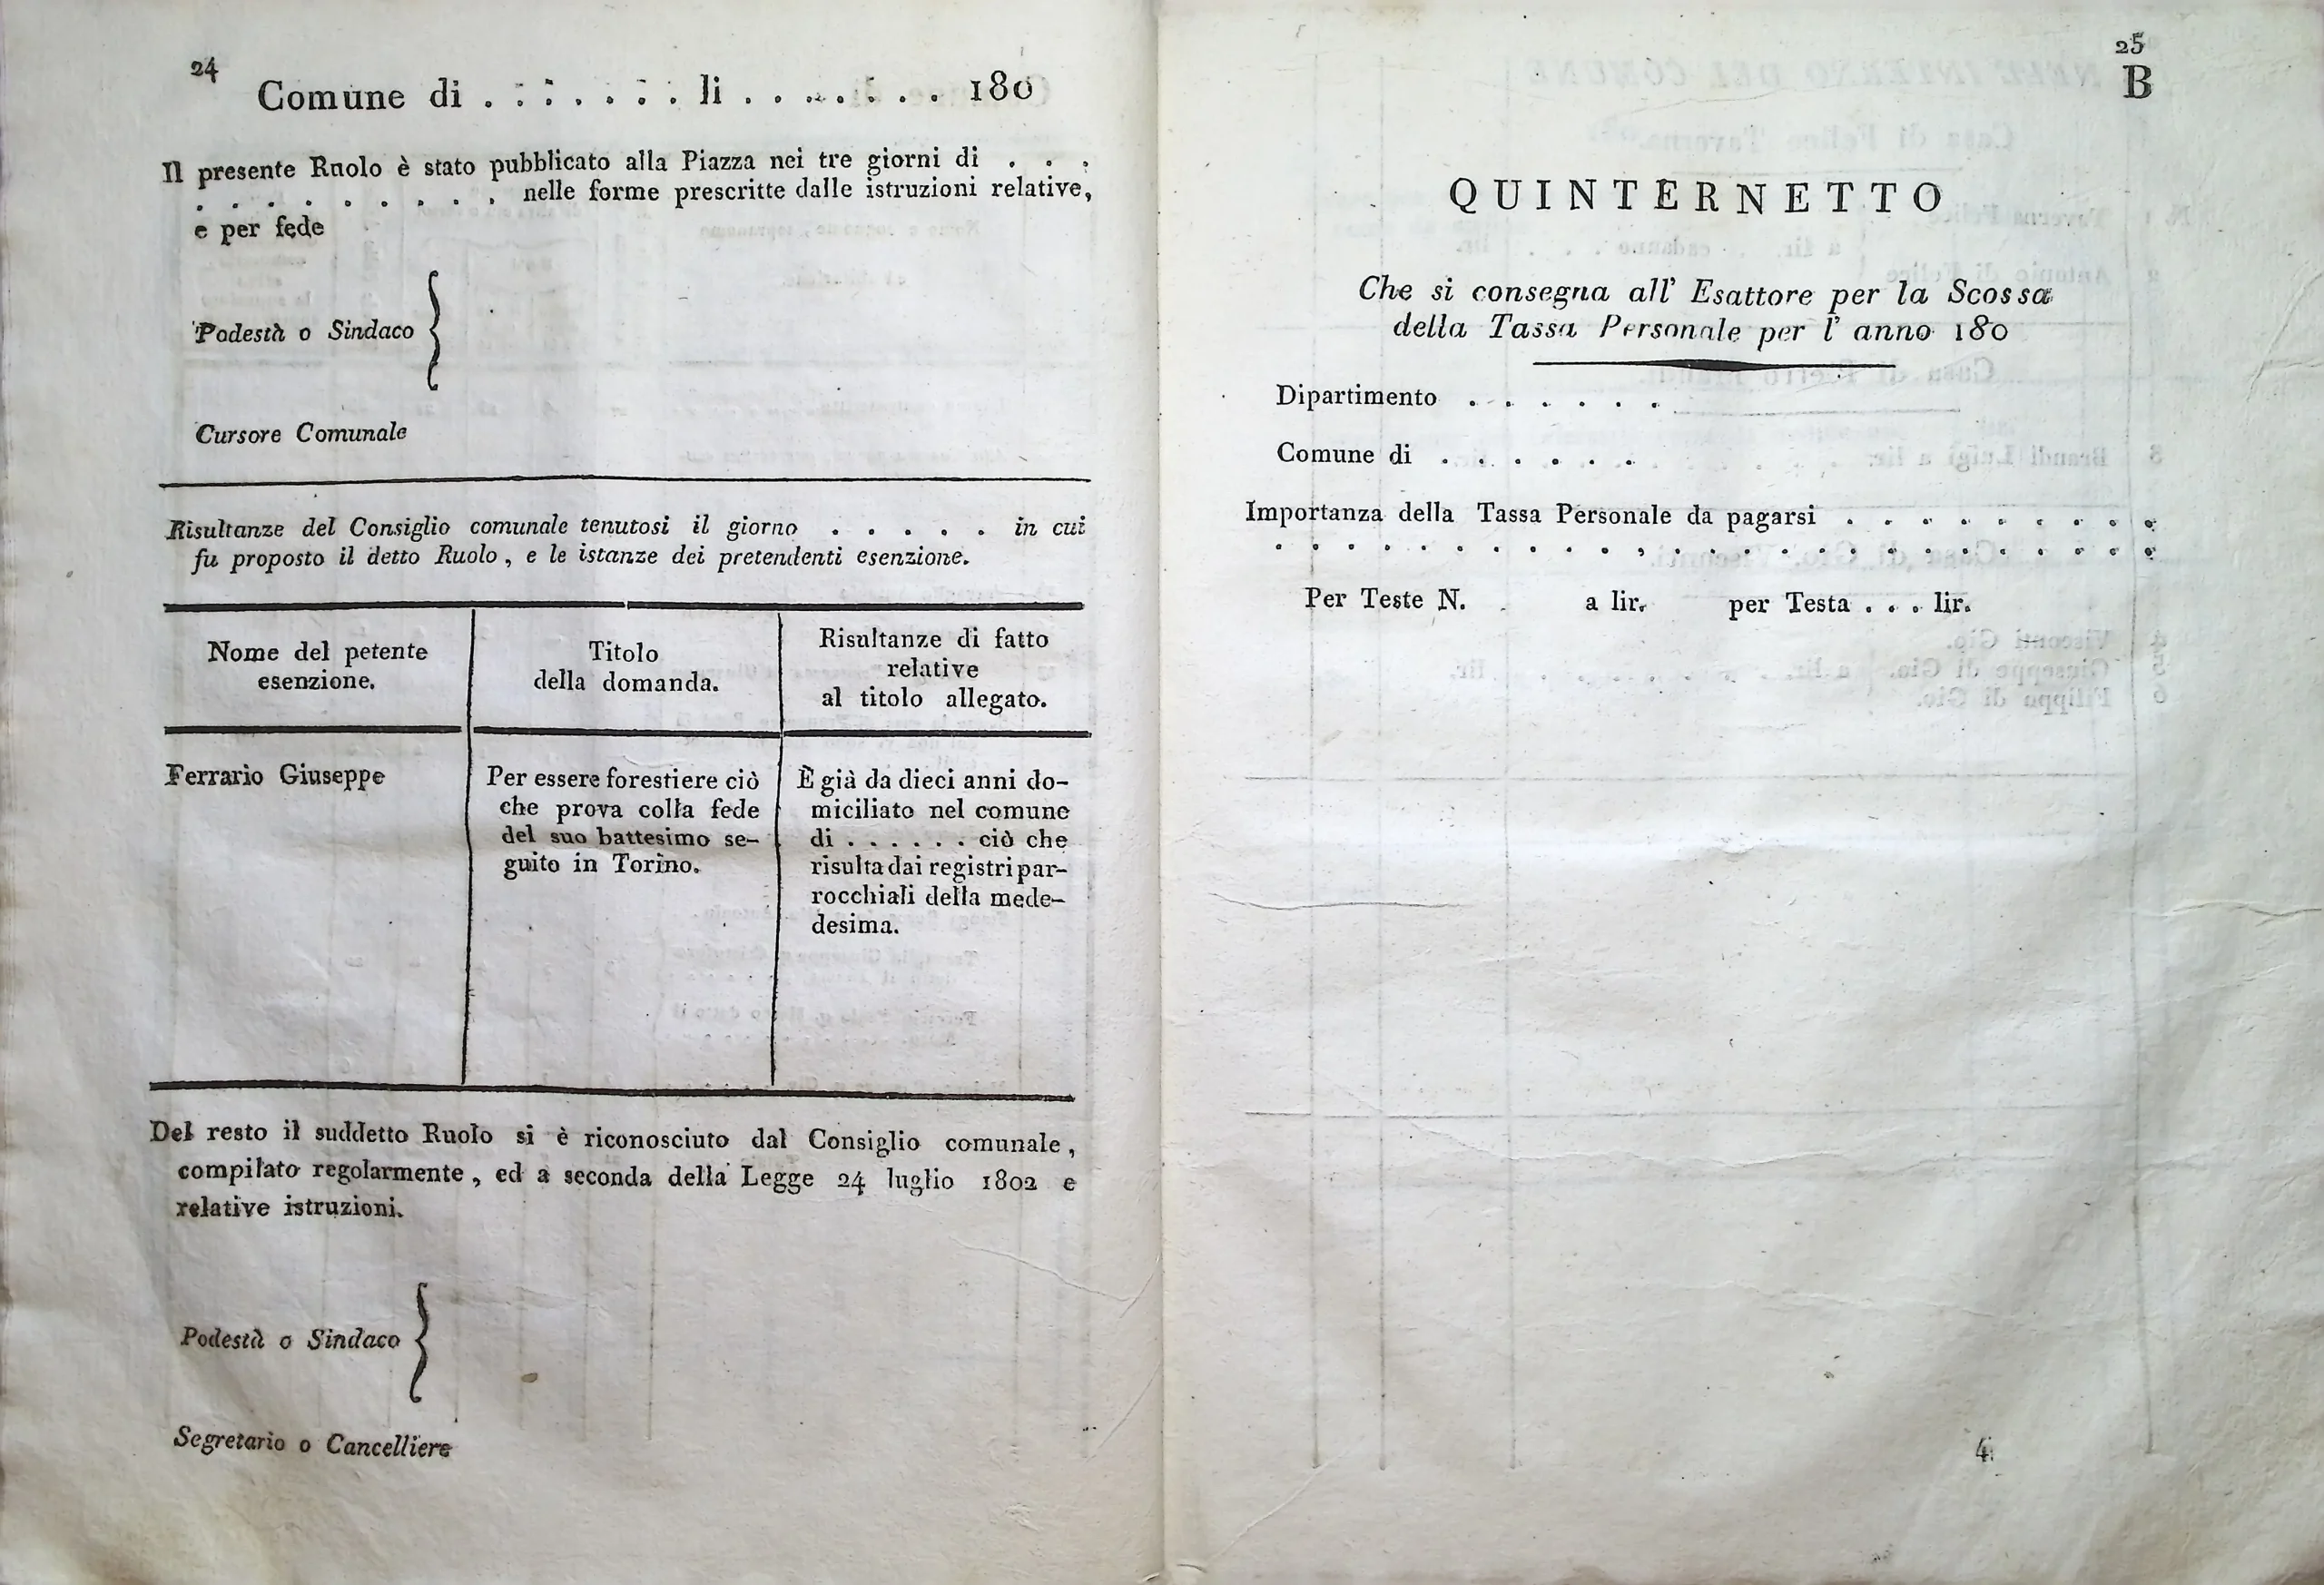 24
Comune di . . . . . . . li . . . . . . . 180
Il presente Ruolo è stato pubblicato alla Piazza nei tre giorni di . . .
. . . . . . . . . nelle forme prescritte dalle istruzioni relative,
e per fede
Podestà o Sindaco {
Cursore Comunale
Risultanze del Consiglio comunale tenutosi il giorno . . . . . in cui
fu proposto il detto Ruolo, e le istanze dei pretendenti esenzione.
Nome del petente
esenzione.
Titolo
della domanda.
Risultanze di fatto
relative
al titolo allegato.
Ferrario Giuseppe
Per essere forestiere ciò
che prova colla fede
del suo battesimo se-
guito in Torino.
È già da dieci anni do-
miciliato nel comune
di . . . . . . ciò che
risulta dai registri par-
rocchiali della mede-
desima.
Del resto il suddetto Ruolo si è riconosciuto dal Consiglio comunale,
compilato regolarmente, ed a seconda della Legge 24 luglio 1802 e
relative istruzioni.
Podestà o Sindaco {
Segretario o Cancelliere
25
B
QUINTERNETTO
Che si consegna all' Esattore per la Scossa
della Tassa Personale per l' anno 180
Dipartimento . . . . . .
Comune di . . . . . .
Importanza della Tassa Personale da pagarsi . . . . . . . . .
. . . . . . . . . . . . . . . . . . . . . . . . .
Per Teste N. a lir. per Testa . . . lir.
4